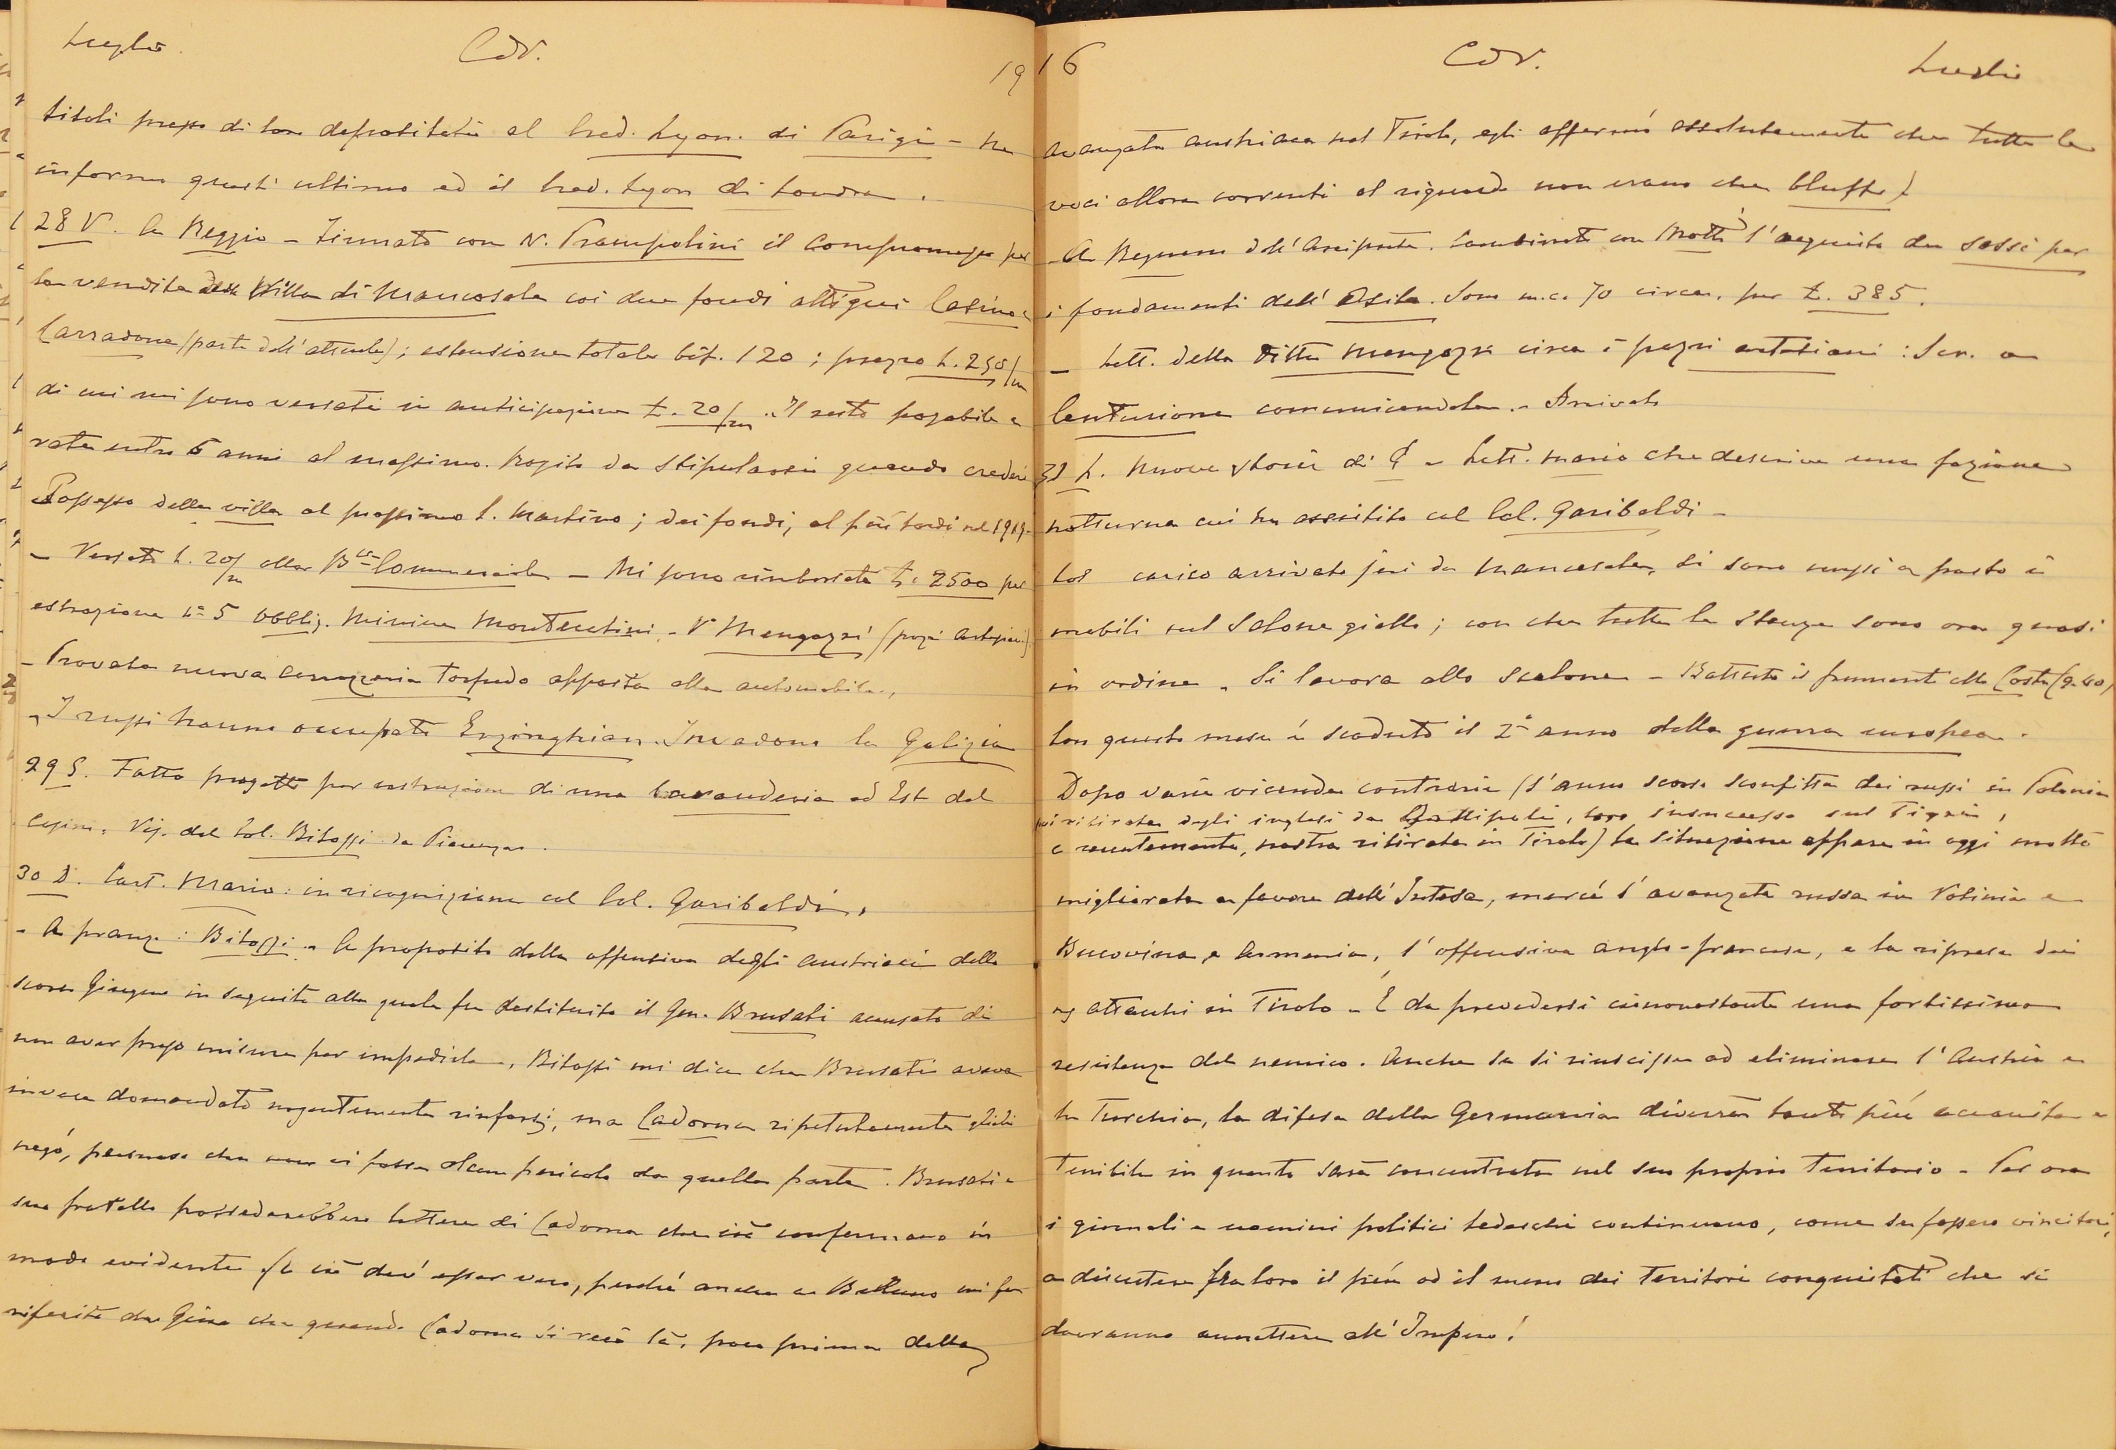 Luglio CdV. 19
titoli presso di loro depositati al Cred. Lyon. di Parigi - Ne
informo quest'ultimo ed il Cred. Lyon di Londra.
28 V. A Reggio - Firmato con N. Prampolini il Compromesso per
la vendita della Villa di Mancasale coi due fondi attigui Casino e
Carradona (parte dell'attuale); estensione totale bif. 120; prezzo L. 250/m
di cui mi sono versati in anticipazione L. 20/m. Il resto pagabile a
rate entro 6 anni al massimo. Rogito da stipularsi quando crederò
Possesso della villa al prossimo S. Martino; dei fondi, al più tardi nel 1919-
- Versati L. 20/m alla Bca Commerciale - Mi sono rimborsate L. 2500 per
estrazione n= 5 Obblig. Miniere Montecatini. - V Mengozzi (pozzi artesiani)
- Provata nuova carrozzeria torpedo apposta alla automobile.
- I russi hanno occupato Erzinghian. Invadono la Galizia
29 S. Fatto progetto per costruzione di una lavanderia ad Est del
Casino. Vis. del Col. Bitossi da Piacenza.
30 D. Cart. Mario: in ricognizione col Col. Garibaldi.
- A pranzo: Bitossi. - A proposito della offensiva degli austriaci dello
scorso Giugno in seguito alla quale fu destituito il Gen. Brusati accusato di
non aver preso misure per impedirla, Bitossi mi dice che Brusati aveva
invece domandato urgentemente rinforzi, ma Cadorna ripetutamente glieli
negò, persuaso che non ci fosse alcun pericolo da quella parte. Brusati e
suo fratello possederebbero lettere di Cadorna che ciò confermano in
modo evidente (E ciò dev'esser vero, perchè anche a Belluno mi fu
riferito da Gino che quando Cadorna si recò là, poco prima della
16 CdV. Luglio
avanzata austriaca nel Tirolo, egli affermò assolutamente che tutte le
voci allora correnti al riguardo non erano che bluffs)
- A Regnano dall'Arciprete. Combinato con Motti l'acquisto dei sassi per
i fondamenti dell'Asilo. Sono m.c. 70 circa, per L. 385.
- Lett. della Ditta Mengozzi circa i pozzi artesiani: Scr. a
Centurione comunicandola. - Arrivato
31 L. Nuove storie di - Lett. Mario che descrive una fazione
notturna cui ha assistito col Col. Garibaldi -
Col carico arrivato jeri da Mancasale, si sono messi a posto i
mobili nel Salone giallo; con che tutte le stanze sono ora quasi
in ordine. Si lavora allo scalone - Battuto il frumento alla Costa (q. 40)
Con questo mese è scaduto il 2° anno della guerra europea.
Dopo varie vicende contrarie (l'anno scorso sconfitta dei russi in Polonia
poi ritirata degli inglesi da Gallipoli, loro insuccesso sul Tigri,
e recentemente, nostra ritirata in Tirolo) la situazione appare in oggi molto
migliorata a favore dell'Intesa, mercè l'avanzata russa in Volinia e
Bucovina, e Armenia, l'offensiva anglo-francese, e la ripresa dei
ns attacchi in Tirolo - È da prevedersi ciononostante una fortissima
resistenza del nemico. Anche se si riuscisse ad eliminare l'Austria e
la Turchia, la difesa della Germania diverrà tanto più accanita e
terribile in quanto sarà concentrata nel suo proprio territorio - Per ora
i giornali e uomini politici tedeschi continuano, come se fossero vincitori,
a discutere fra loro il più od il meno dei territori conquistati che si
dovranno annettere all'Impero!